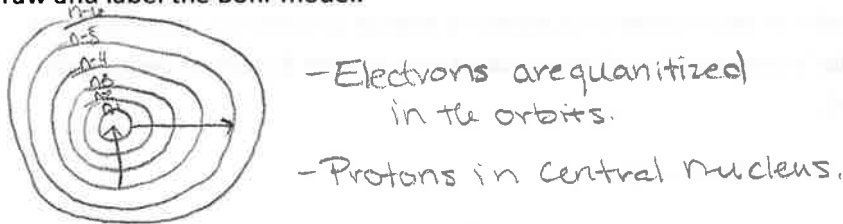 raw and label the Bohr model.
n-6
n-5
n-4
n3
- Electrons are quanitized
in the orbits.
- Protons in central nucleus.